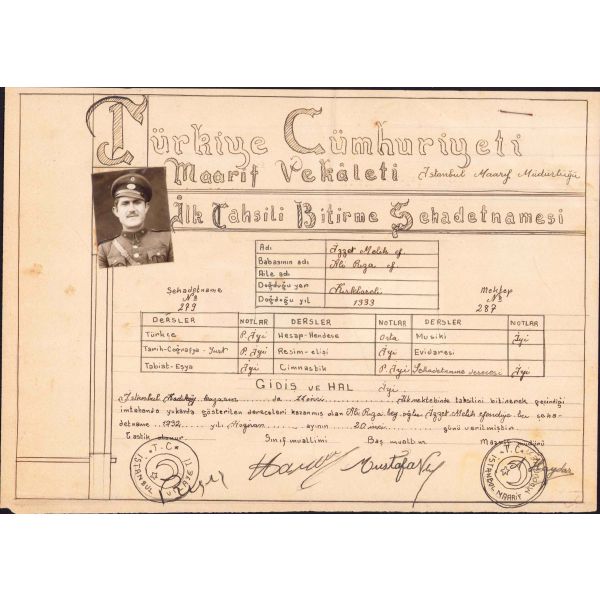 Türkiye Cümhuriyeti
Maarif Vekâleti İstanbul Maarif Müdürlüğü
İlk Tahsili Bitirme Şehadetnamesi
Adı İzzet Melih ef.
Babasının adı Ali Rıza ef.
Aile adı
Doğduğu yer Kırklareli
Doğduğu yıl 1333
Şehadetname
No
279
Mektep
No
287
DERSLER NOTLAR DERSLER NOTLAR DERSLER NOTLAR
Türkçe P. İyi Hesap-Hendese Orta Musiki İyi
Tarih-Coğrafya-Yurt P. İyi Resim-elişi İyi Evidaresi
Tabiat-Eşya İyi Cimnastik P. İyi Şehadetname derecesi İyi
GİDİŞ VE HAL İyi
İstanbul Kadıköy da İlkmektebinde tahsilini bitirerek geçirdiği
imtahanda yukarıda gösterilen dereceleri kazanmış olan Ali Rıza bey oğlu İzzet Melih efendiye bu şeha-
detname 1932 yılı Haziran ayının 20 inci günü verilmiştir.
Tastik olunur Sınıf muallimi Baş muallim Maarif müdürü
T.C.
İSTANBUL VİLAYETİ
Mustafa
T.C.
İSTANBUL MAARİF
Haydar